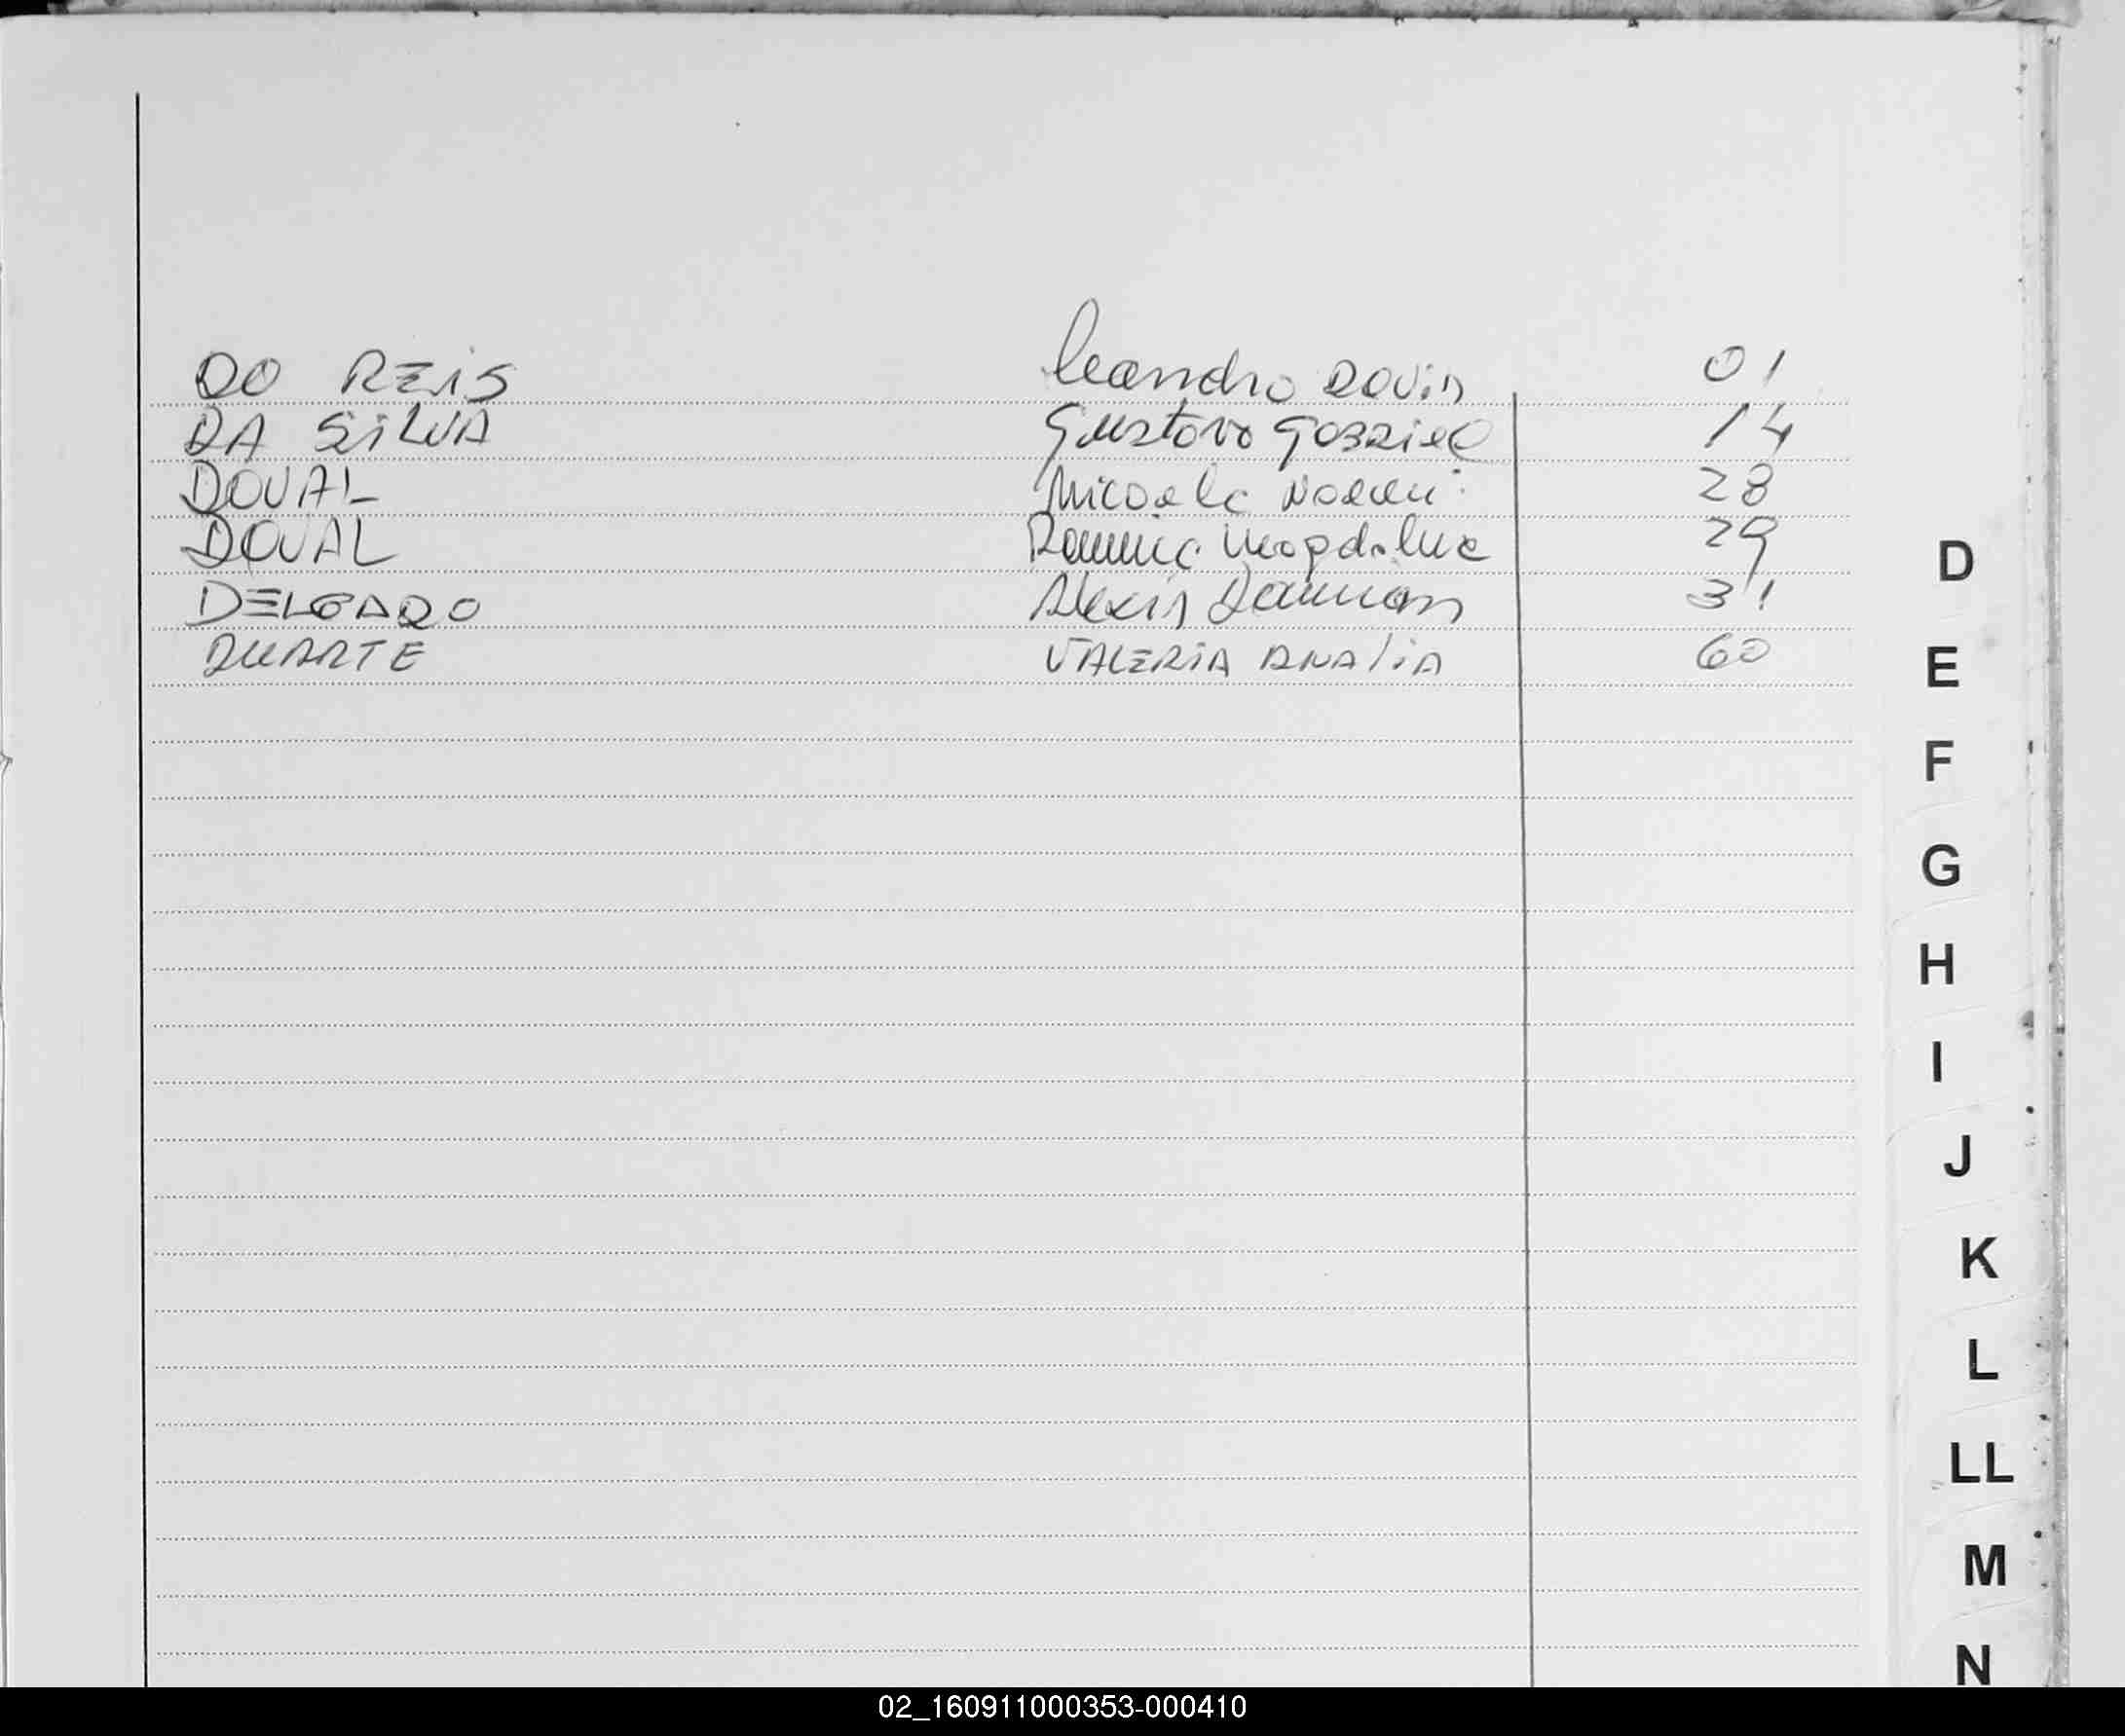 DO REIS Leandro David 01
DA SILVA Gustavo Gabriel 14
DOUAL Micaela Noemi 28
DOUAL Romina Magdalena 29
DELGADO Alexis Damian 31
DUARTE VALERIA ANALIA 60
D
E
F
G
H
I
J
K
L
LL
M
N
02_160911000353-000410